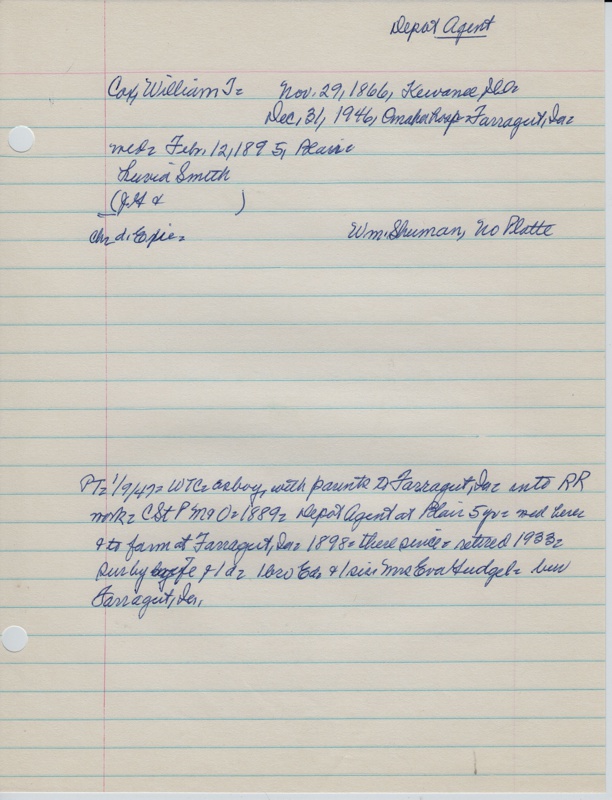 Depot Agent
Cox, William T= Nov. 29, 1866, Kewanee, Ill=
Dec, 31, 1946, Omaha Hosp= Farragut, Ia=
med= Feb. 12, 1895, Blair=
Smith
(J.H &          )
ch= d. Wm. Shuman, No Platte
PT= 1/9/47= WTC= as boy, with parents to Farragut, Ia= into RR
work= C St P M & O= 1889= Depot Agent at Blair 5 yr= med here
& to farm at Farragut, Ia= 1898= there since= retired 1933=
sur by & 1 d= 1 bro Ed, & 1 sis= Mrs Eva Gudgel= bur
Farragut, Ia,